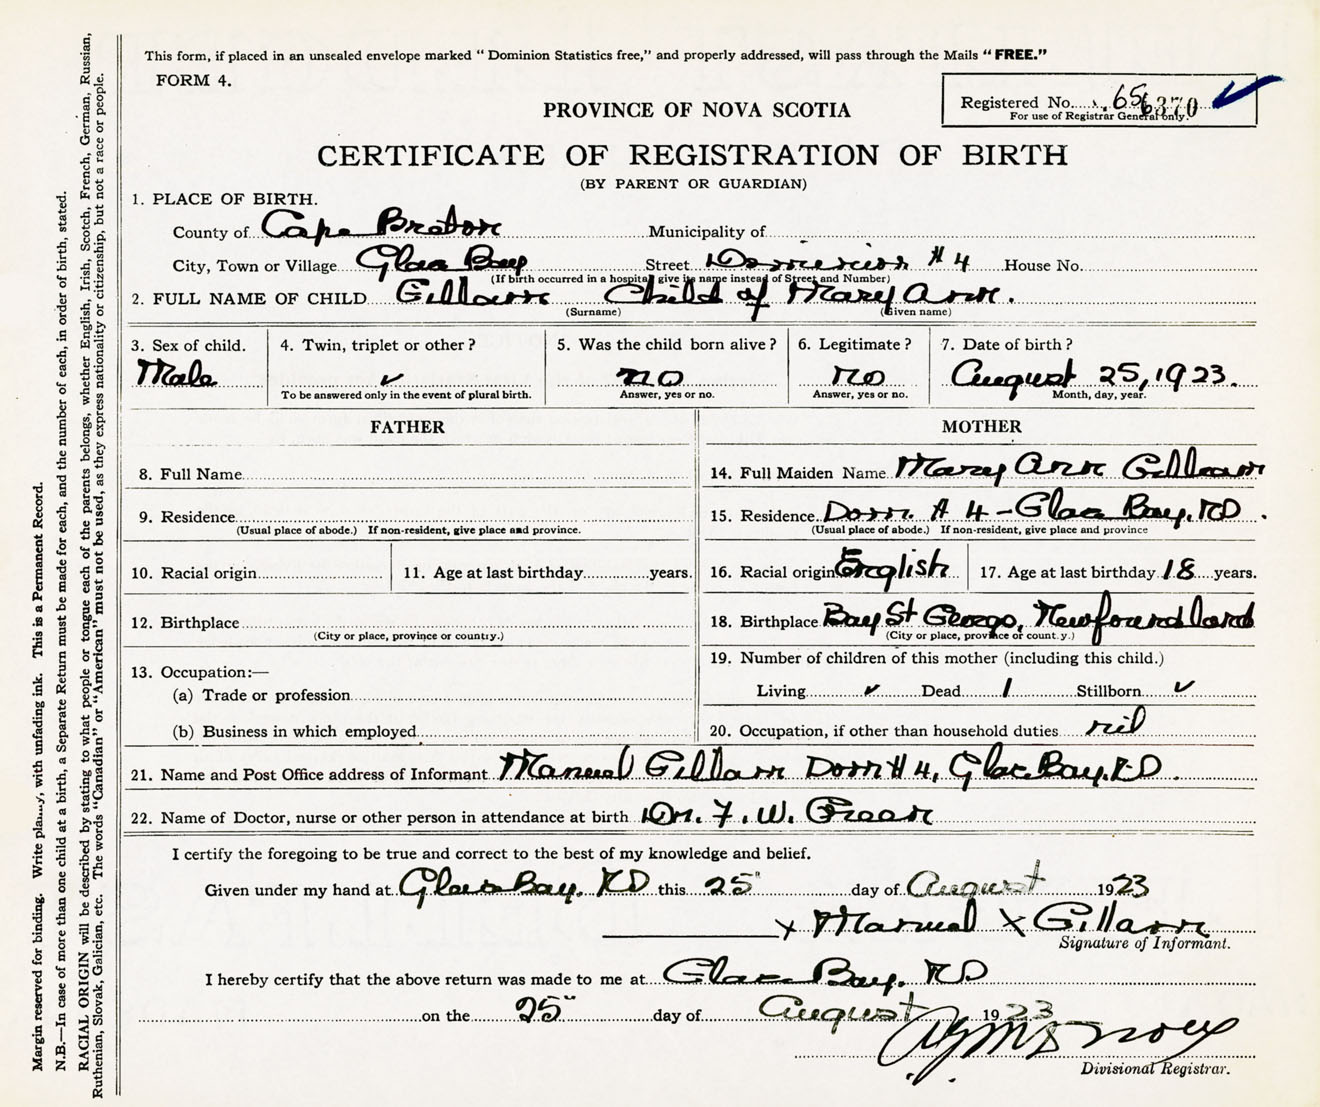 This form, if placed in an unsealed envelope marked " Dominion Statistics free," and properly addressed, will pass through the Mails " FREE."
FORM 4.
PROVINCE OF NOVA SCOTIA
Registered No. 656370
For use of Registrar General only.
CERTIFICATE OF REGISTRATION OF BIRTH
(BY PARENT OR GUARDIAN)
1. PLACE OF BIRTH.
County of Cape Breton Municipality of
City, Town or Village Glace Bay Street Dominion # 4 House No.
(If birth occurred in a hospital give its name instead of Street and Number)
2. FULL NAME OF CHILD Gillam Child of Mary Ann.
(Surname) (Given name)
3. Sex of child. 4. Twin, triplet or other ? 5. Was the child born alive ? 6. Legitimate ? 7. Date of birth ?
Male ✓ no no August 25, 1923.
To be answered only in the event of plural birth. Answer, yes or no. Answer, yes or no. Month, day, year.
FATHER MOTHER
8. Full Name 14. Full Maiden Name Mary Ann Gillam
9. Residence 15. Residence Dom. # 4 - Glace Bay. RD.
(Usual place of abode.) If non-resident, give place and province. (Usual place of abode.) If non-resident, give place and province
10. Racial origin 11. Age at last birthday years. 16. Racial origin English 17. Age at last birthday 18 years.
12. Birthplace 18. Birthplace Bay St George, Newfoundland
(City or place, province or country.) (City or place, province or count.y.)
13. Occupation:— 19. Number of children of this mother (including this child.)
(a) Trade or profession Living ✓ Dead 1 Stillborn ✓
(b) Business in which employed 20. Occupation, if other than household duties nil
21. Name and Post Office address of Informant Manuel Gillam Dom # 4, Glace Bay. RD.
22. Name of Doctor, nurse or other person in attendance at birth Dr. F. W.
I certify the foregoing to be true and correct to the best of my knowledge and belief.
Given under my hand at Glace Bay. RD this 25" day of August 1923
x Manuel x Gillam
Signature of Informant.
I hereby certify that the above return was made to me at Glace Bay. RD
on the 25" day of August 1923
Divisional Registrar.
Margin reserved for binding. Write plainly, with unfading ink. This is a Permanent Record.
N.B.—In case of more than one child at a birth, a Separate Return must be made for each, and the number of each, in order of birth, stated.
RACIAL ORIGIN will be described by stating to what people or tongue each of the parents belongs, whether English, Irish, Scotch, French, German, Russian,
Ruthenian, Slovak, Galician, etc. The words "Canadian" or "American" must not be used, as they express nationality or citizenship, but not a race or people.